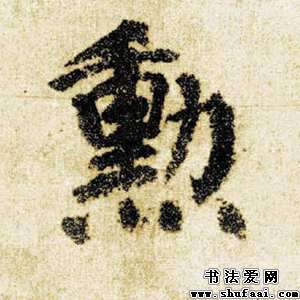 勳
书法爱网
www.shufaai.com